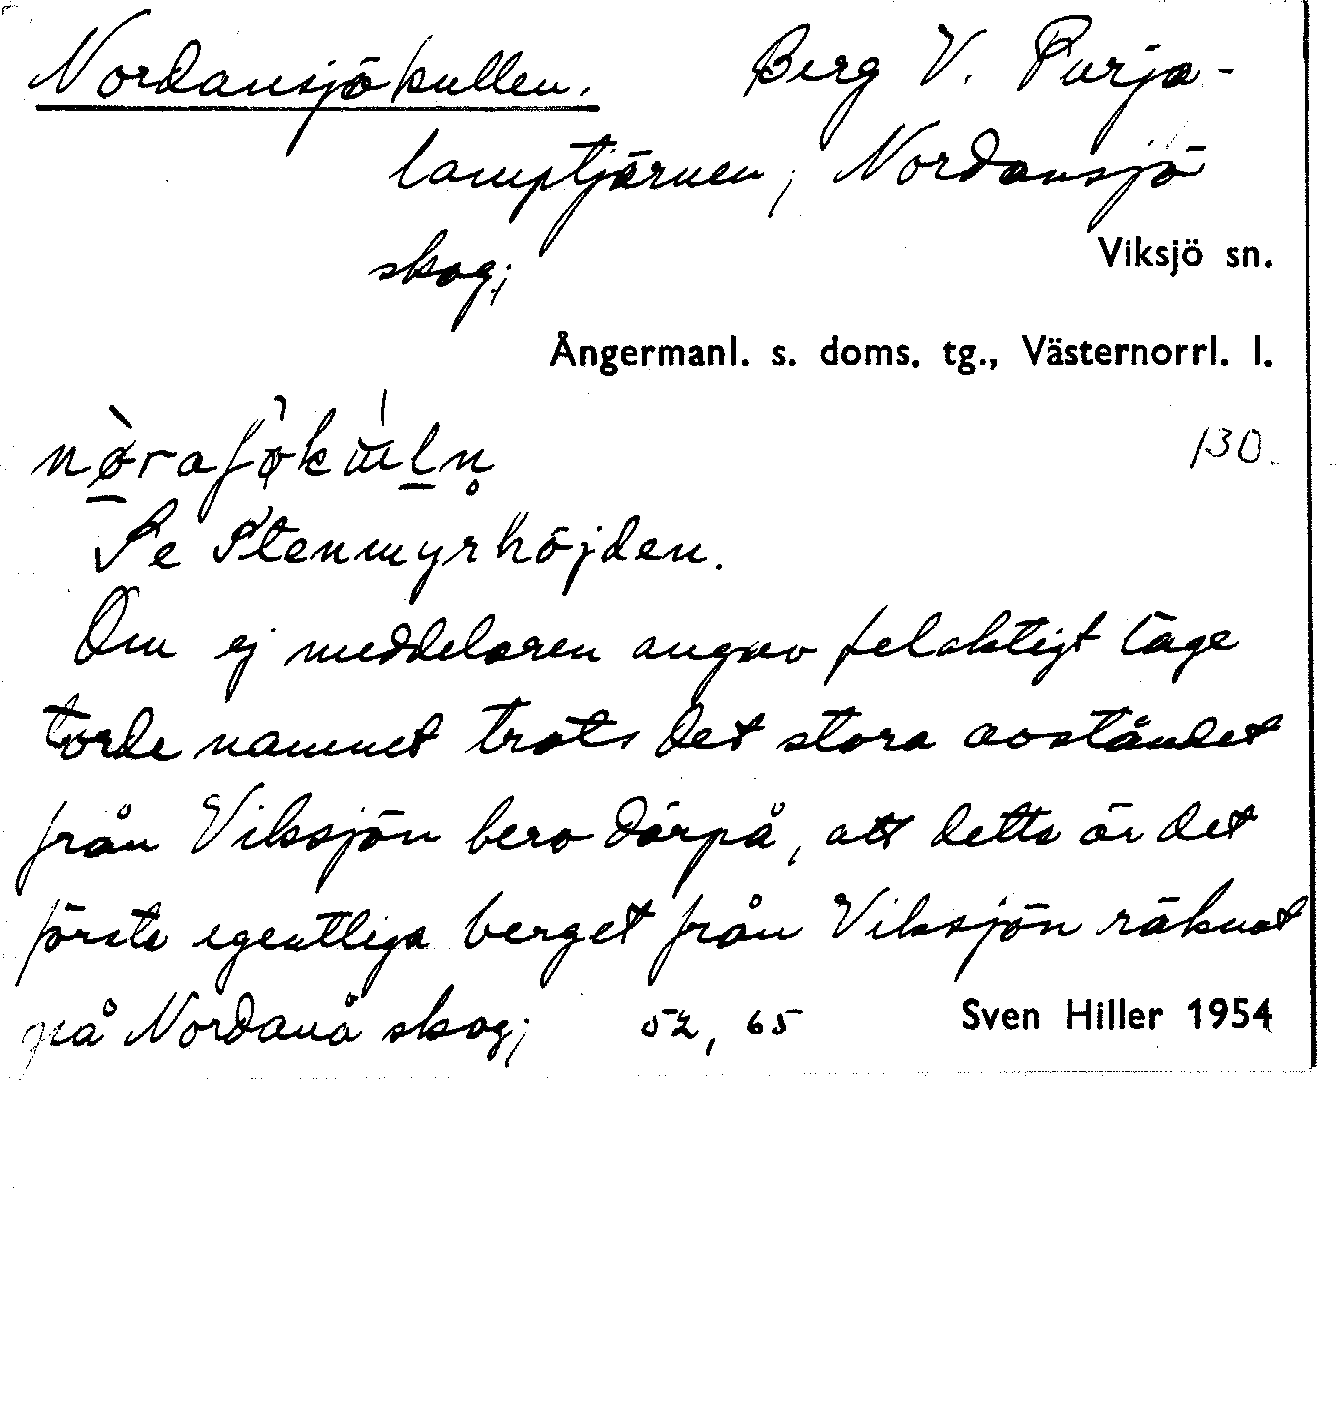 Nordansjökullen. Berg V. Purja-
lamptjärnen, Nordansjö
skog;
Viksjö sn.
Ångermanl. s. doms. tg., Västernorrl. l.
130.
Se Stenmyrhöjden.
Om ej meddelaren angav felaktigt läge
torde namnet trots det stora avståndet
från Viksjön bero därpå, att detta är det
första egentliga berget från Viksjön räknat
på Nordanå skog; 52, 65 Sven Hiller 1954